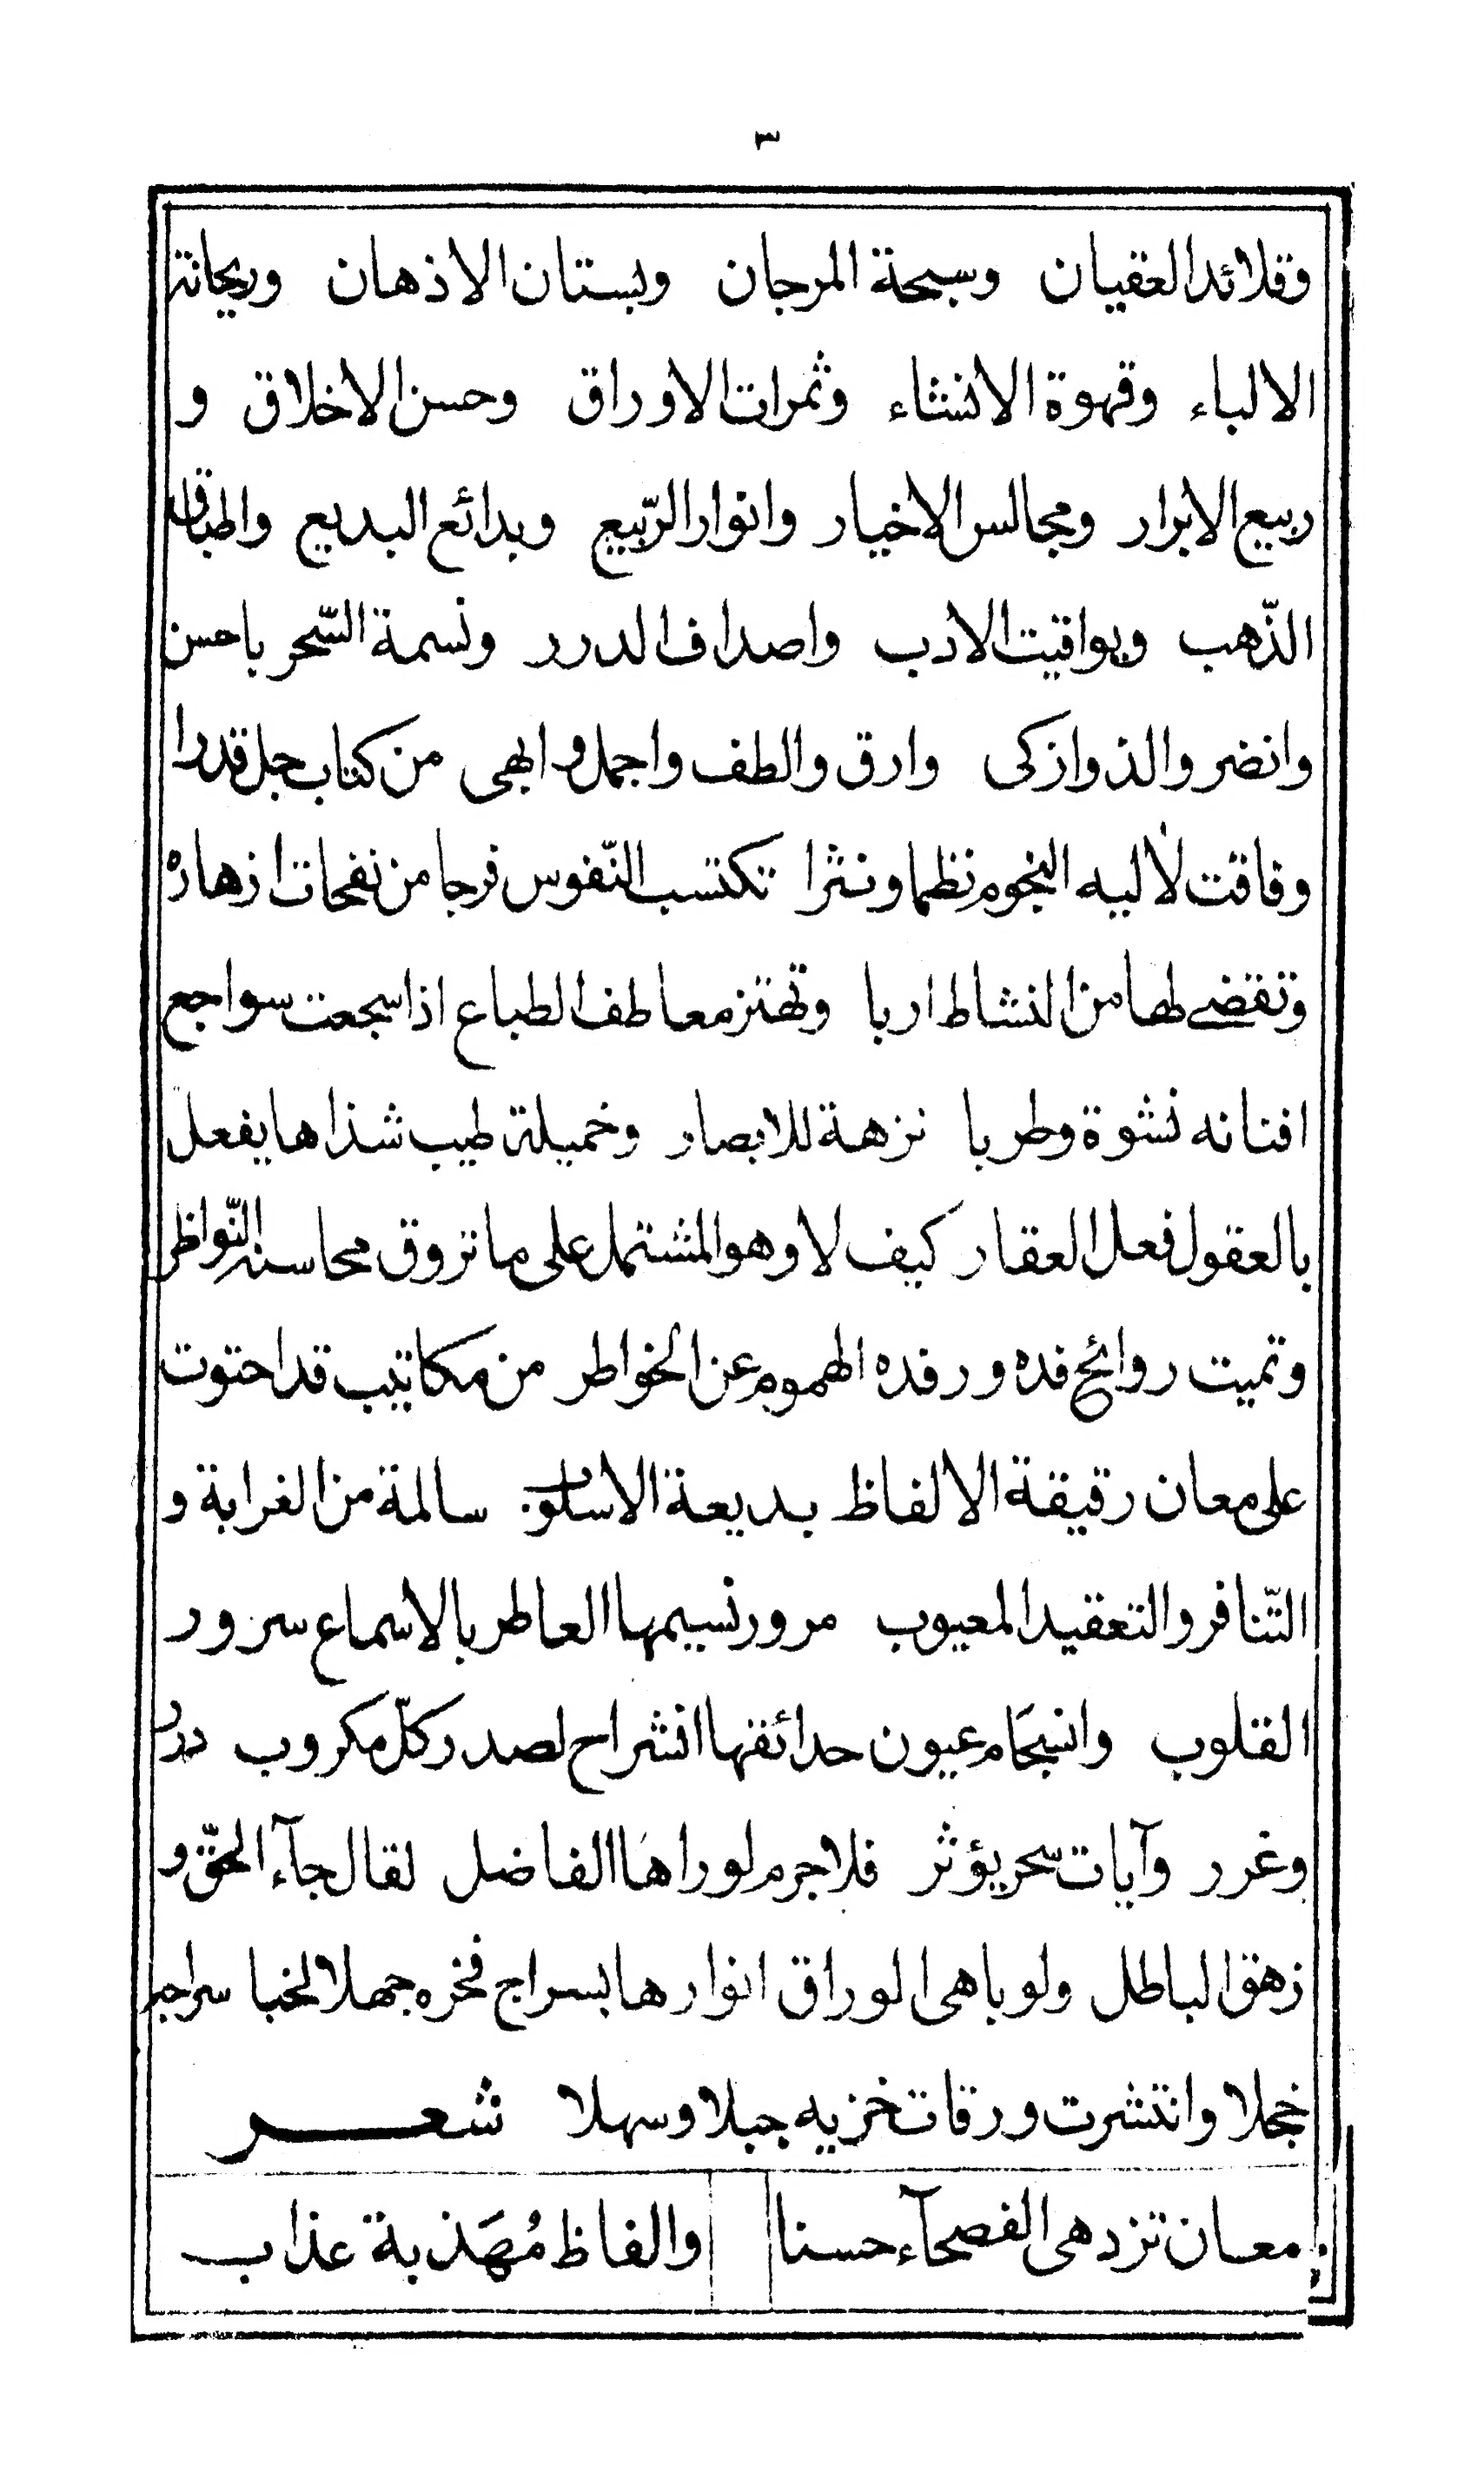 ٣
وقلائد العقيان وسبحة المرجان وبستان الاذهان وريحانة
الالباء وقهوة الانشاء وثمرات الاوراق وحسن الاخلاق و
ربيع الابرار ومجالس الاخيار وانوار الرّبيع وبدائع البديع واطباق
الذّهب ويواقيت الادب واصداف الدرر ونسمة السّحر باحسن
وانضر والذ وازكى وارق والطف واجمل وابهى من كتاب جل قدرا
وفاقت لآليه النجوم نظما ونثرا تكتسب النّفوس فرجا من نفحات ازهاره
وتقضے لها من النشاط اربا وتهتز معاطف الطباع اذا سجعت سواجع
افنانه نشوة وطربا نزهة للابصار وخميلة طيب شذاها يفعل
بالعقول فعل العقار كيف لا وهو المشتمل على ما تروق محاسنه النّواظر
وتميت روائح فده ورفده الهموم عن الخواطر من مكاتيب قد احتوت
على معان رقيقة الالفاظ بديعة الاسلوب سالمة من الغرابة و
التّنافر والتعقيد المعيوب مرور نسيمها العاطر بالاسماع سرور
القلوب وانسجَام عيون حدائقها انشراح لصدر كلّ مكروب درر
وغرر وآيات سحر يؤثر فلا جرم لو راهَا الفاضل لقال جآء الحقّ و
زهق الباطل ولو باهى الوراق انوارها بسراج فخره جهلا لخبا سراجه
خجلا وانتشرت ورقات خزيه جبلا وسهلا شعر
معان تزدهى الفصحآء حسنا والفاظ مُهَذبة عذاب